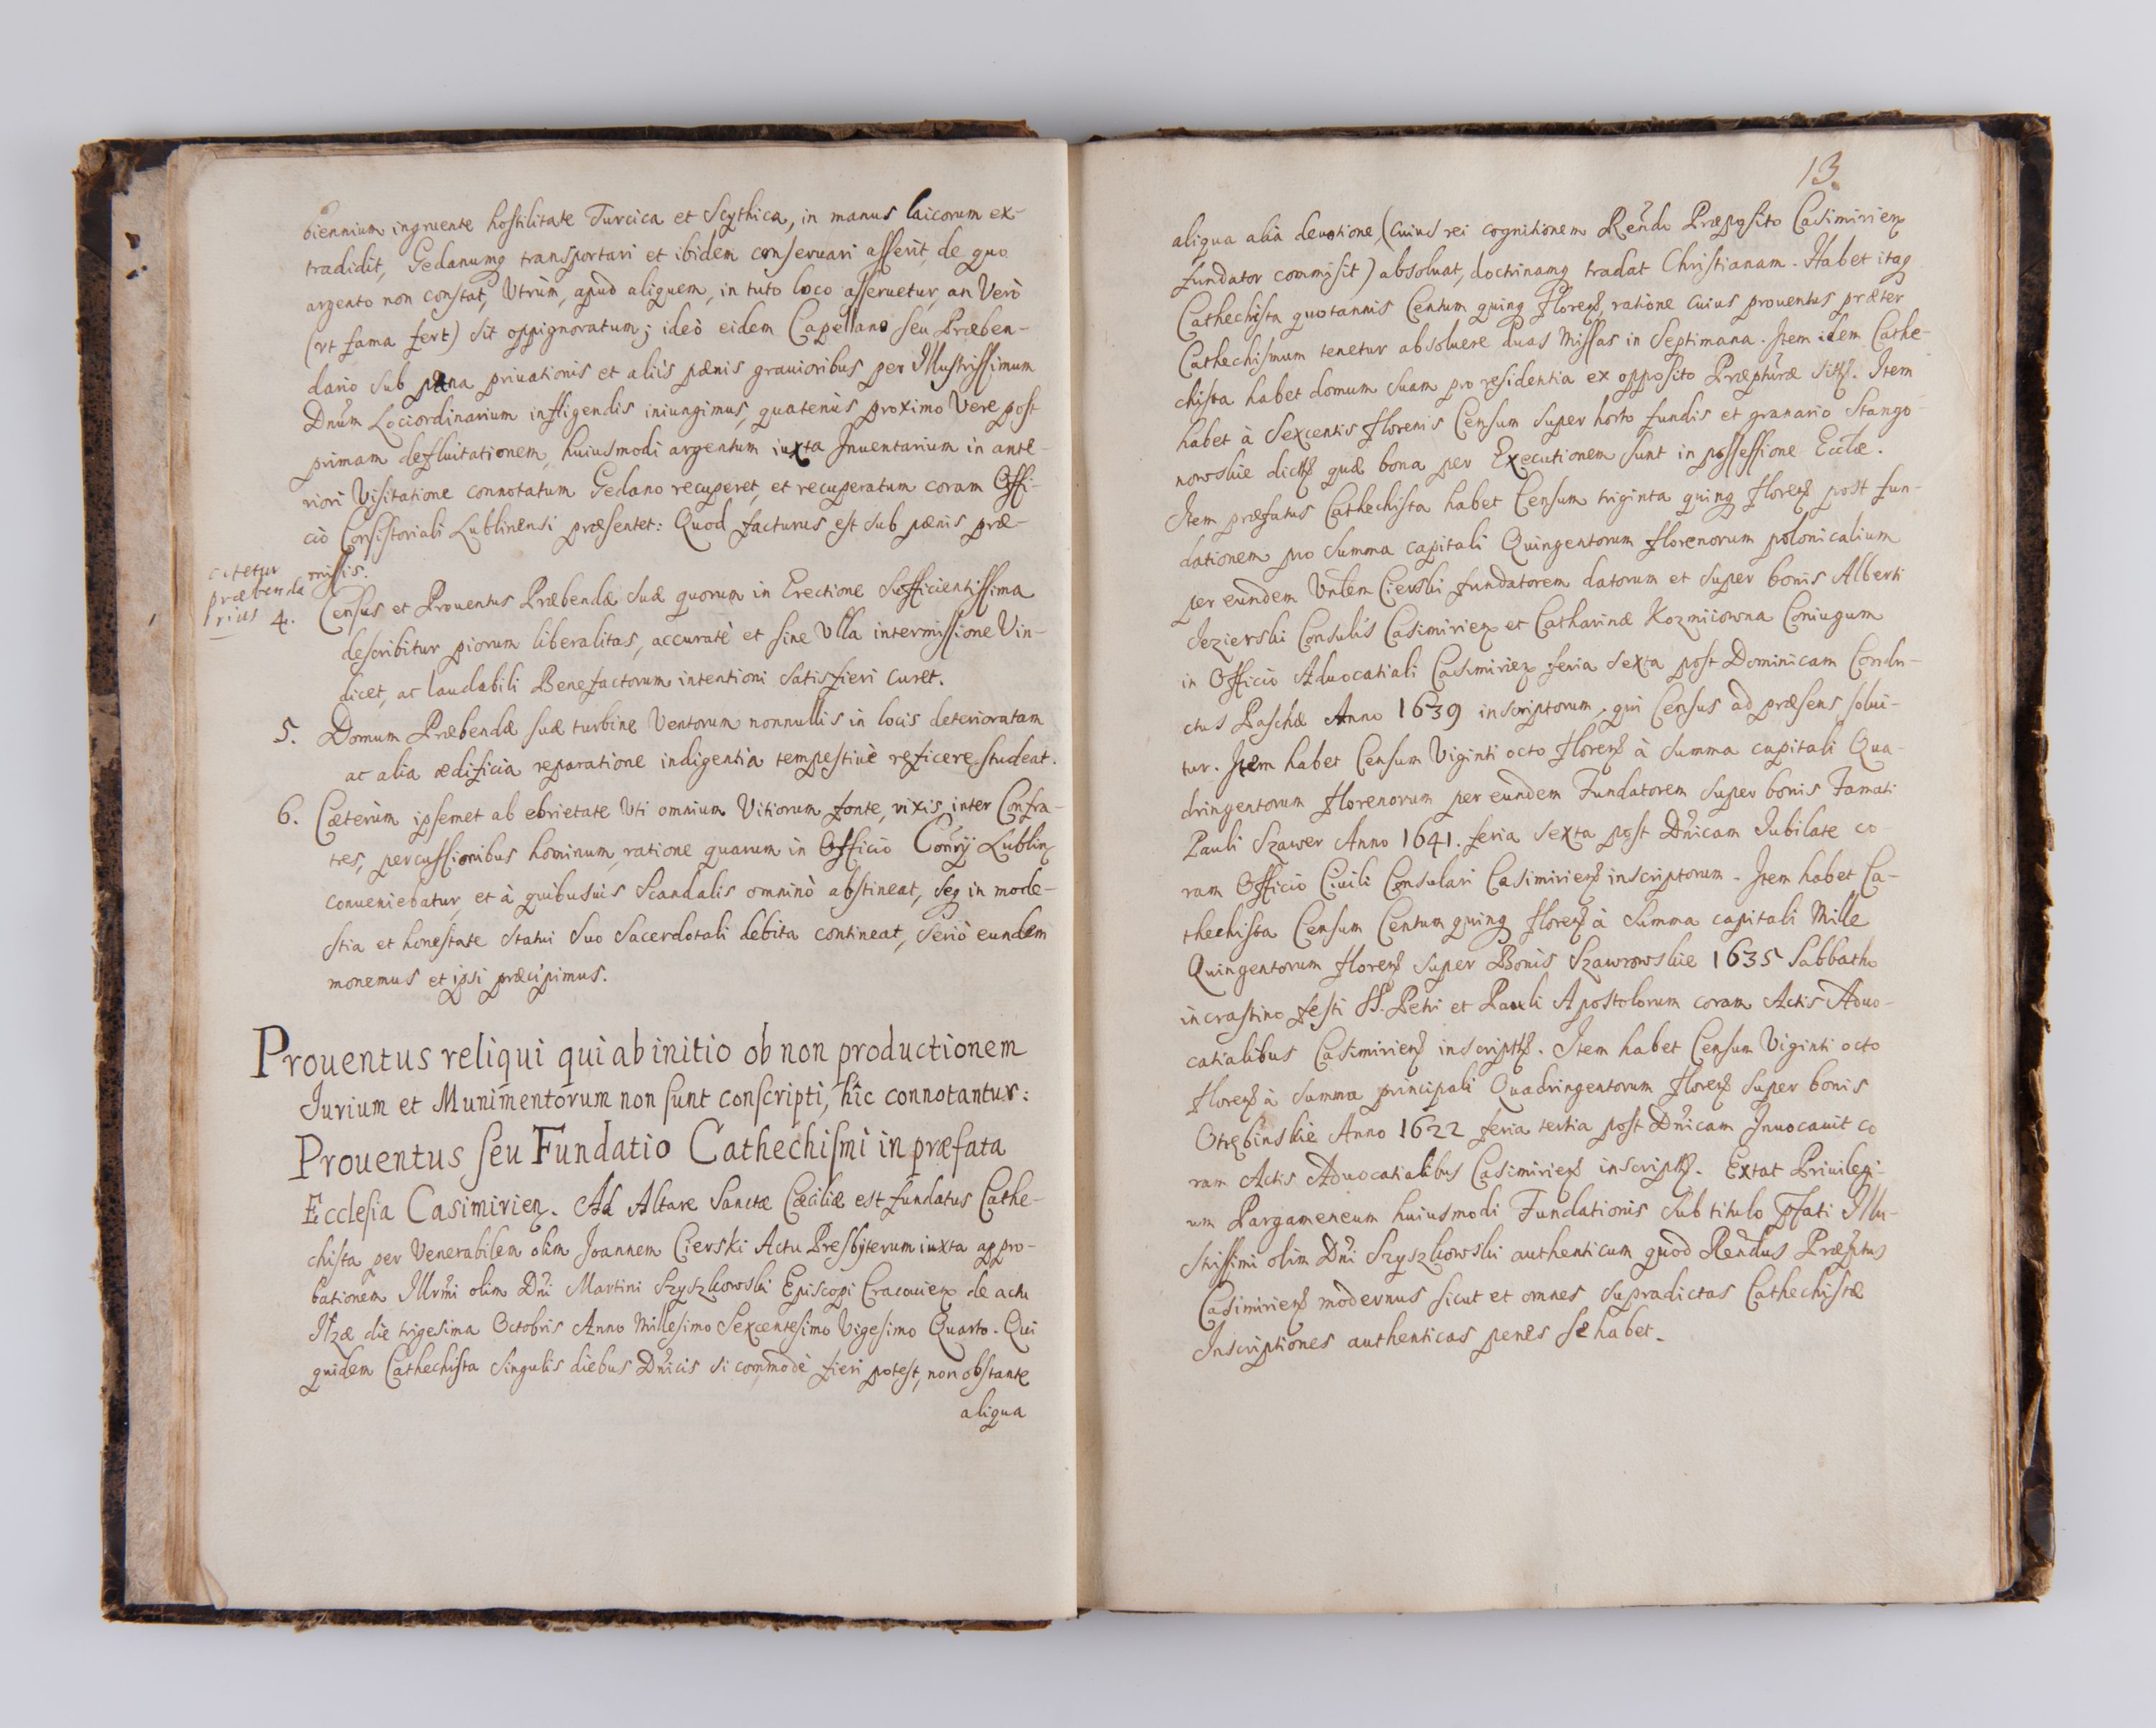 biennium ingruente hostilitate Turcica et Scythica, in manus laicorum ex-
tradidit, Gedanumq transportari et ibidem conseruari asserit, de quo
argento non constat, Utrùm, apud aliquem, in tuto loco asseruetur, an Verò
(vt fama fert) sit oppignoratum; ideò eidem Capellano seu Præben-
dario sub pæna priuationis et aliis pænis grauioribus per Illustrissimum
Dnum Lociordinarium infligendis iniungimus, quatenùs proximo Vere post
primam defluitationem, huiusmodi argentum iuxta Inuentarium in ante-
riori Visitatione connotatum Gedano recuperet, et recuperatum coram Offi-
ciò Consistoriali Lublinensi præsentet: Quod facturus est sub pænis præ-
missis.
citetur
præbenda
prius
4. Census et Prouentus Præbendæ suæ quorum in Erectione Sufficientissima
describitur piorum liberalitas, accuratè et sine Ulla intermissione Vin-
dicet, ac laudabili Benefactorum intentioni satisfieri curet.
5. Domum Præbendæ suæ turbine Ventorum nonnullis in locis deterioratam
ac alia ædificia reparatione indigentia tempestiuè reficere studeat.
6. Cæterùm ipsemet ab ebrietate Uti omnium Vitiorum fonte, rixis inter Confra-
tres, percussionibus hominum, ratione quarum in Officio Conrÿ Lublin
conueniebatur, et à quibusuis Scandalis omninò abstineat, seq in mode-
stia et honestate statui suo Sacerdotali debita contineat, seriò eundem
monemus et ipsi præcipimus.
Prouentus reliqui qui ab initio ob non productionem
Iurium et Munimentorum non sunt conscripti, hîc connotantur:
Prouentus seu Fundatio Cathechismi in præfata
Ecclesia Casimirien. Ad Altare Sanctæ Cæciliæ est fundatus Cathe-
chista per Venerabilem olim Joannem Cierski Actu Presbÿterum iuxta appro-
bationem Illrmi olim Dni Martini Szyszkowski Episcopi Cracouien de actu
die trigesima Octobris Anno Millesimo Sexcentesimo Vigesimo Quarto. Qui
quidem Cathechista singulis diebus Dnicis si commodè fieri potest, non obstante
aliqua
13.
aliqua alia deuotione, (cuius rei cognitionem Rendo Præposito Casimirien
fundator commisit) absoluat, doctrinamq tradat Christianam. Habet itaq
Cathechista quotannis Centum quinq floren, ratione cuius prouentus præter
Cathechismum tenetur absoluere duas Missas in Septimana. Item idem Cathe-
chista habet domum suam pro residentia ex opposito Præpturæ sitt. Item
habet à Sexcentis florenis Censum super horto fundis et granario Stango-
nowskie dict quæ bona per Executionem sunt in possessione Ecclæ.
Item præfatus Cathechista habet Censum triginta quinq floren post fun-
dationem pro summa capitali Quingentorum florenorum polonicalium
per eundem Vnlem Cierski fundatorem datorum et super bonis Alberti
Jezierski Consulis Casimirien et Catharinæ Kozmiiowna Coniugum
in Officio Aduocatiali Casimirien feria sexta post Dominicam Condu-
ctus Paschæ Anno 1639 inscriptorum, qui Census ad præsens solui-
tur. Item habet Censum Viginti octo floren à summa capitali Qua-
dringentorum florenorum per eundem Fundatorem super bonis Famati
Pauli Szawer Anno 1641. feria sexta post Dnicam Iubilate co-
ram Officio Ciuili Consulari Casimirien inscriptorum. Item habet Ca-
thechista Censum Centum quinq floren à summa capitali Mille
Quingentorum floren super Bonis Szawrowskie 1635 Sabbatho
in crastino festi SS. Petri et Pauli Apostolorum coram Actis Aduo-
catialibus Casimirien inscript. Item habet Censum Viginti octo
floren à summa principali Quadringentorum floren super bonis
Otrębinskie Anno 1622 feria tertia post Dnicam Inuocauit co
ram Actis Aduocatialibus Casimirien inscript. Extat Priuilegi-
um Pargameneum huiusmodi Fundationis sub titulo pfati Illu-
strissimi olim Dni Szyszkowski authenticum quod Rendus Præptus
Casimirien modernus sicut et omnes supradictas Cathechistæ
Inscriptiones authenticas penes se habet.